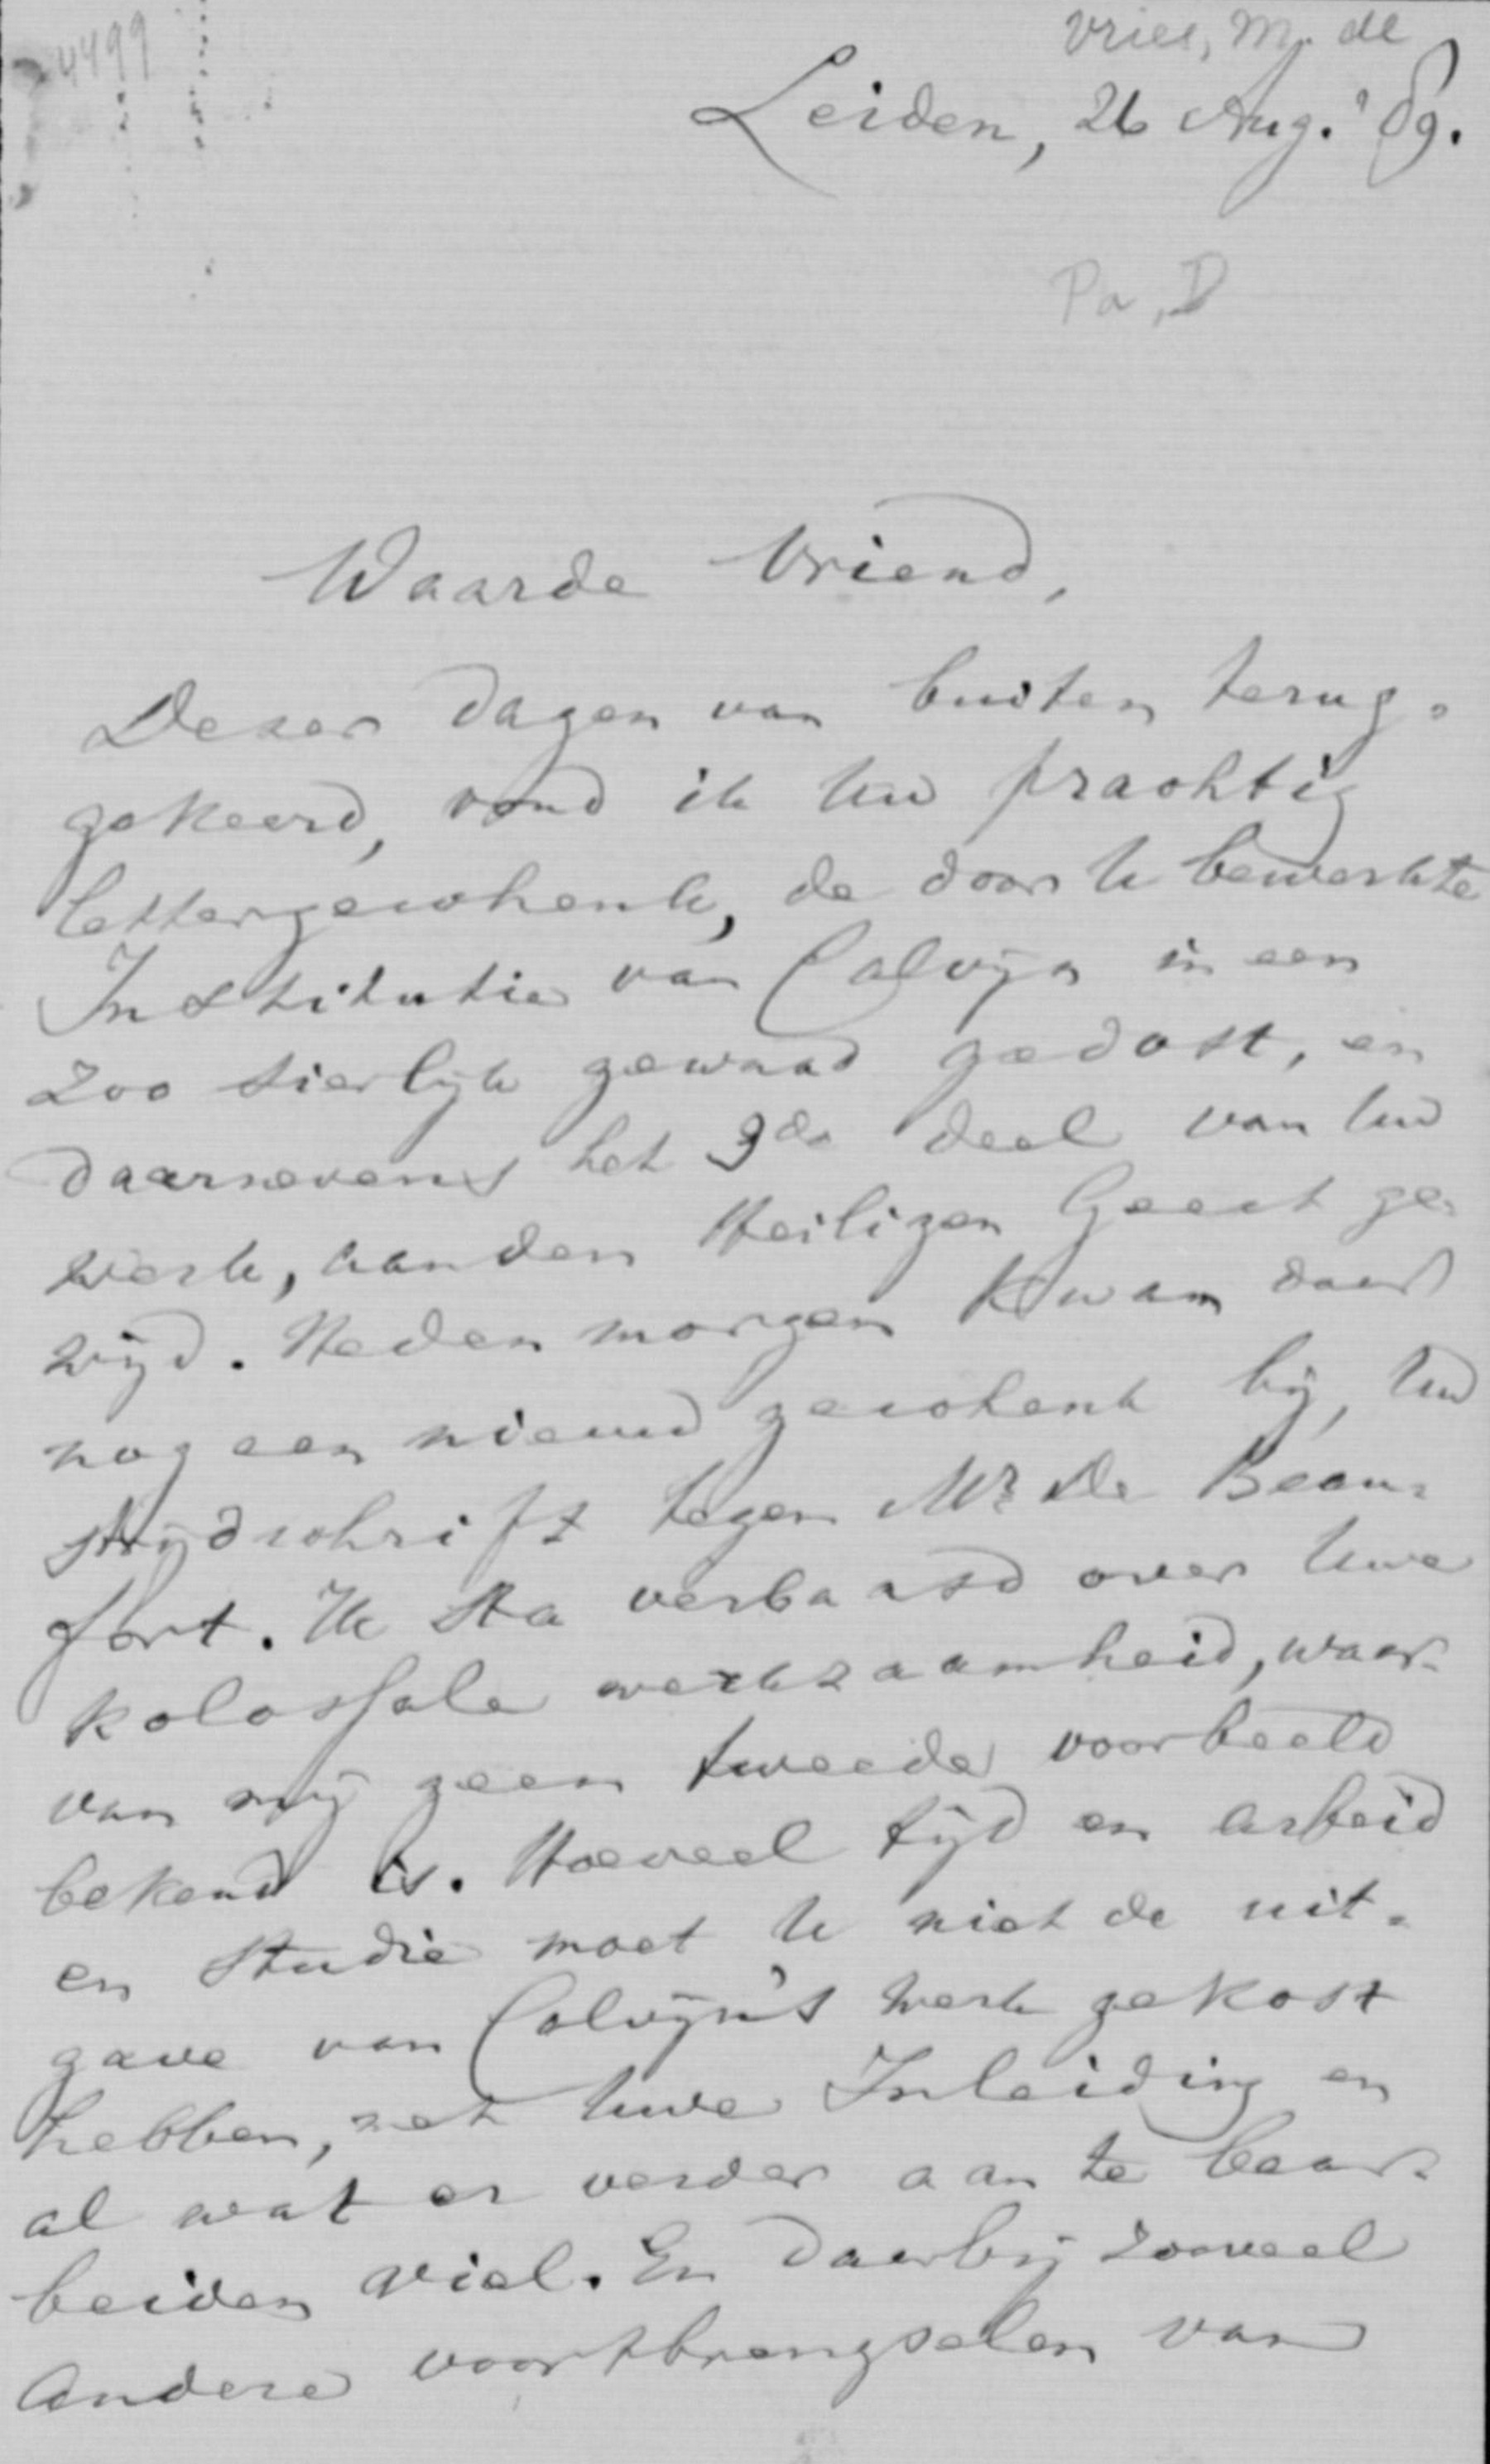 4499
Vries, M. de
Leiden, 26 Aug. '89.
Pa, D
Waarde Vriend,
Dezer dagen van buiten terug-
gekeerd, vond ik Uw prachtig
lettergeschenk, de door U bewerkte
Institutie van Calvijn in een
zoo sierlijk gewaad gedost, en
daarnevens het 3de deel van Uw
werk, aan den Heiligen Geest ge-
wijd. Heden morgen kwam daar
nog een nieuw geschenk bij, Uw
strijdschrift tegen Mr. De Beau-
fort. Ik sta verbaasd over Uwe
kolossale werkzaamheid, waar-
van mij geen tweede voorbeeld
bekend is. Hoeveel tijd en arbeid
en studie moet U niet de uit-
gave van Calvijn's werk gekost
hebben, met Uwe Inleiding en
al wat er verder aan te bear-
beiden viel. En daarbij zooveel
andere voortbrengselen van